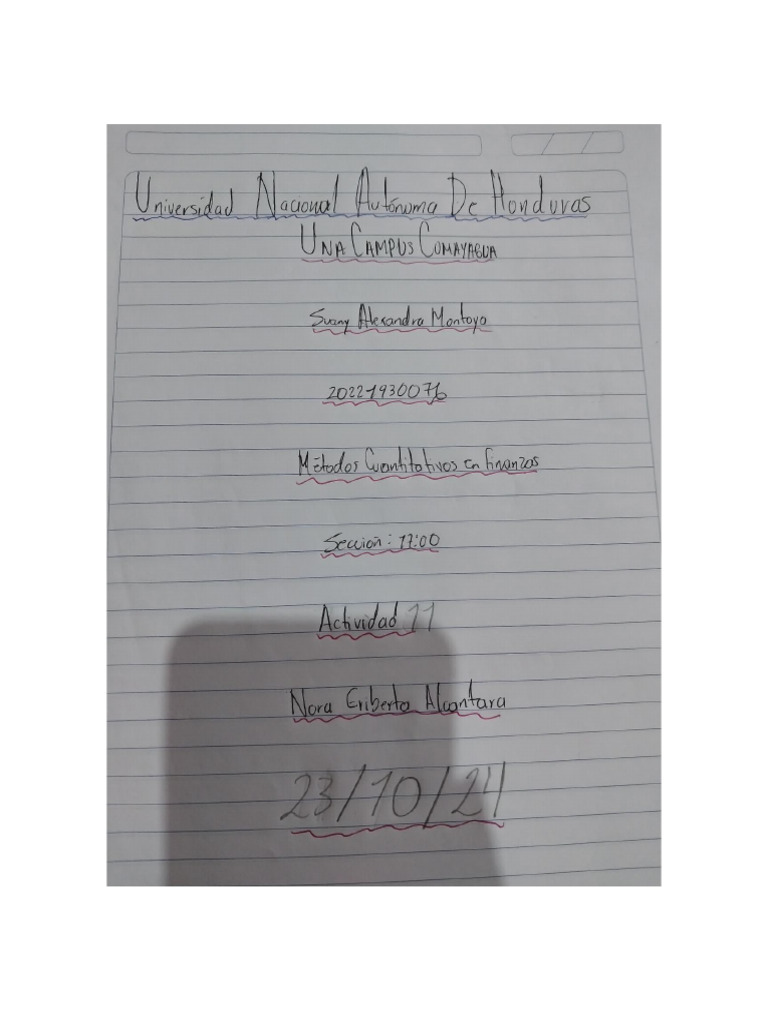 Universidad Nacional Autónoma De Honduras
UNA CAMPUS COMAYAGUA
Suany Alexandra Montoya
20221930076
Métodos Cuantitativos en finanzas
Sección: 17:00
Actividad 11
Nora Eriberto Alcantara
23/10/24